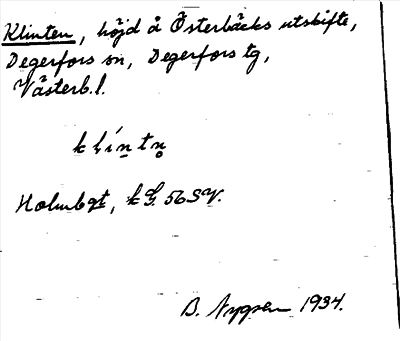 Klinten, höjd å Österbäcks utskifte,
Degerfors sn, Degerfors tg,
Västerb.l.
klíntn̥
Holmbgt, kG. 56 SV.
B. Nygren 1934.